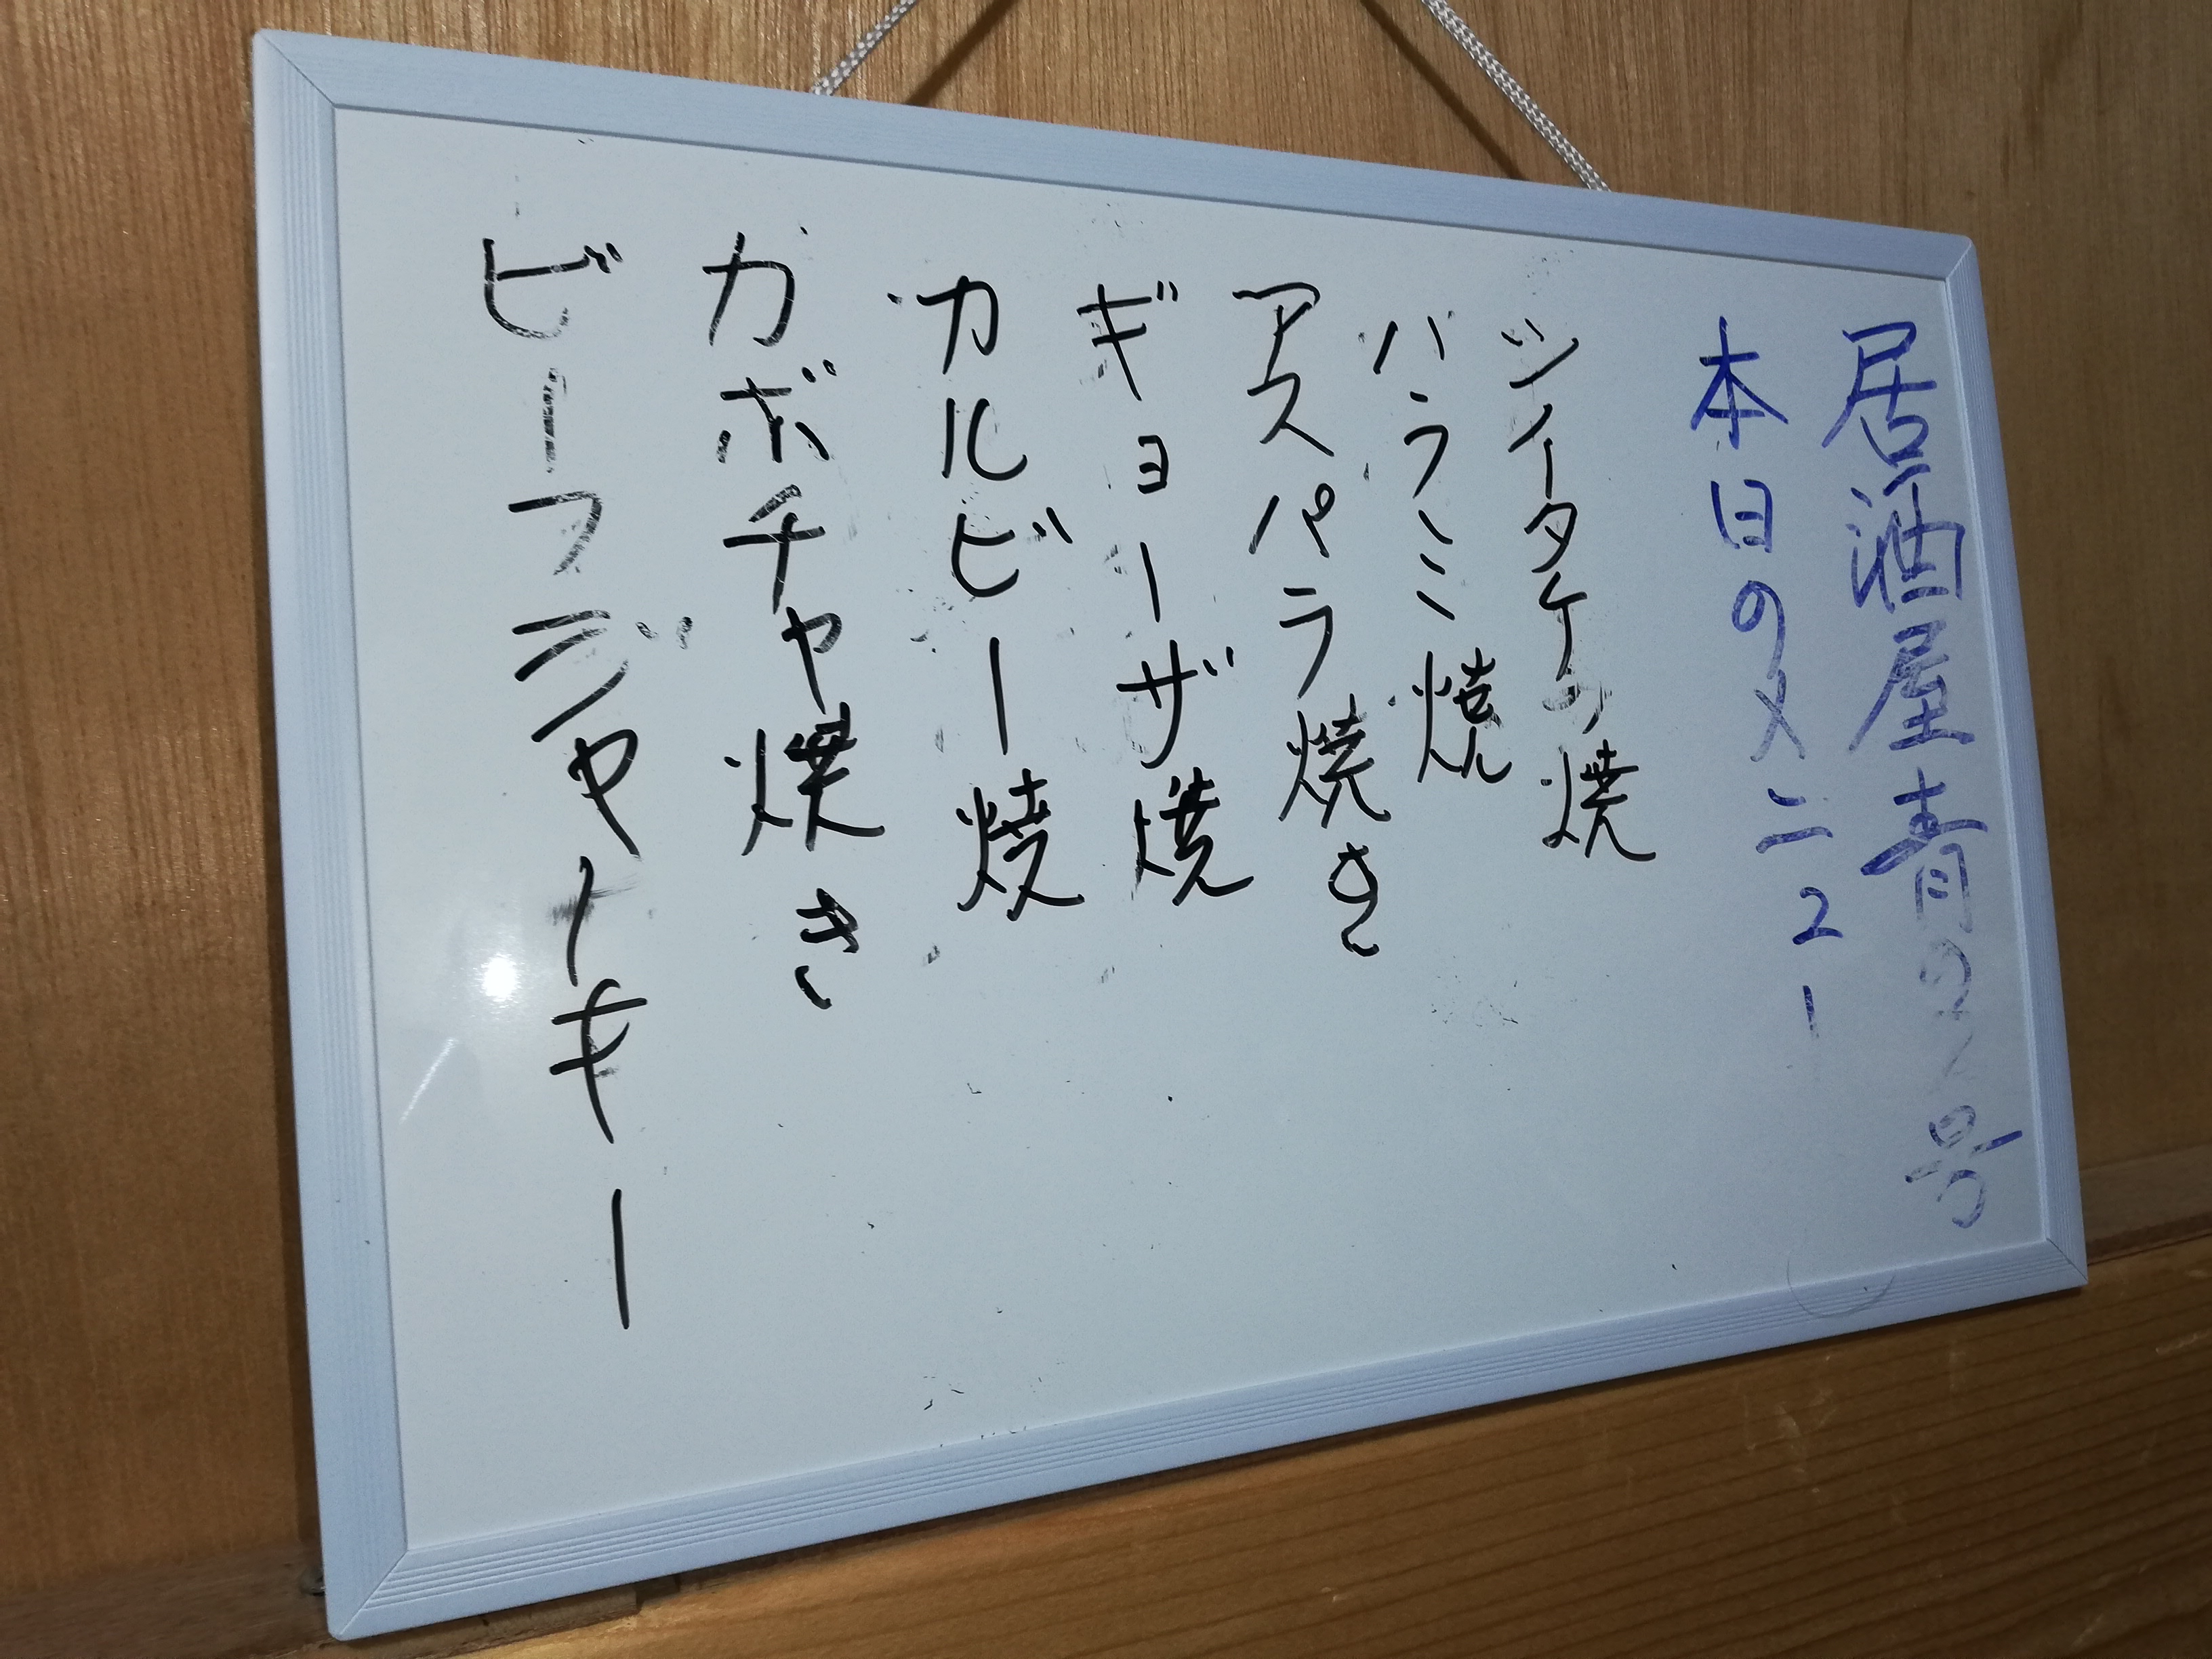 居酒屋青の1号
本日のメニュー
シイタケ焼
ハラミ焼
アスパラ焼き
ギョーザ焼
カルビー焼
カボチャ焼き
ビーフジャーキー